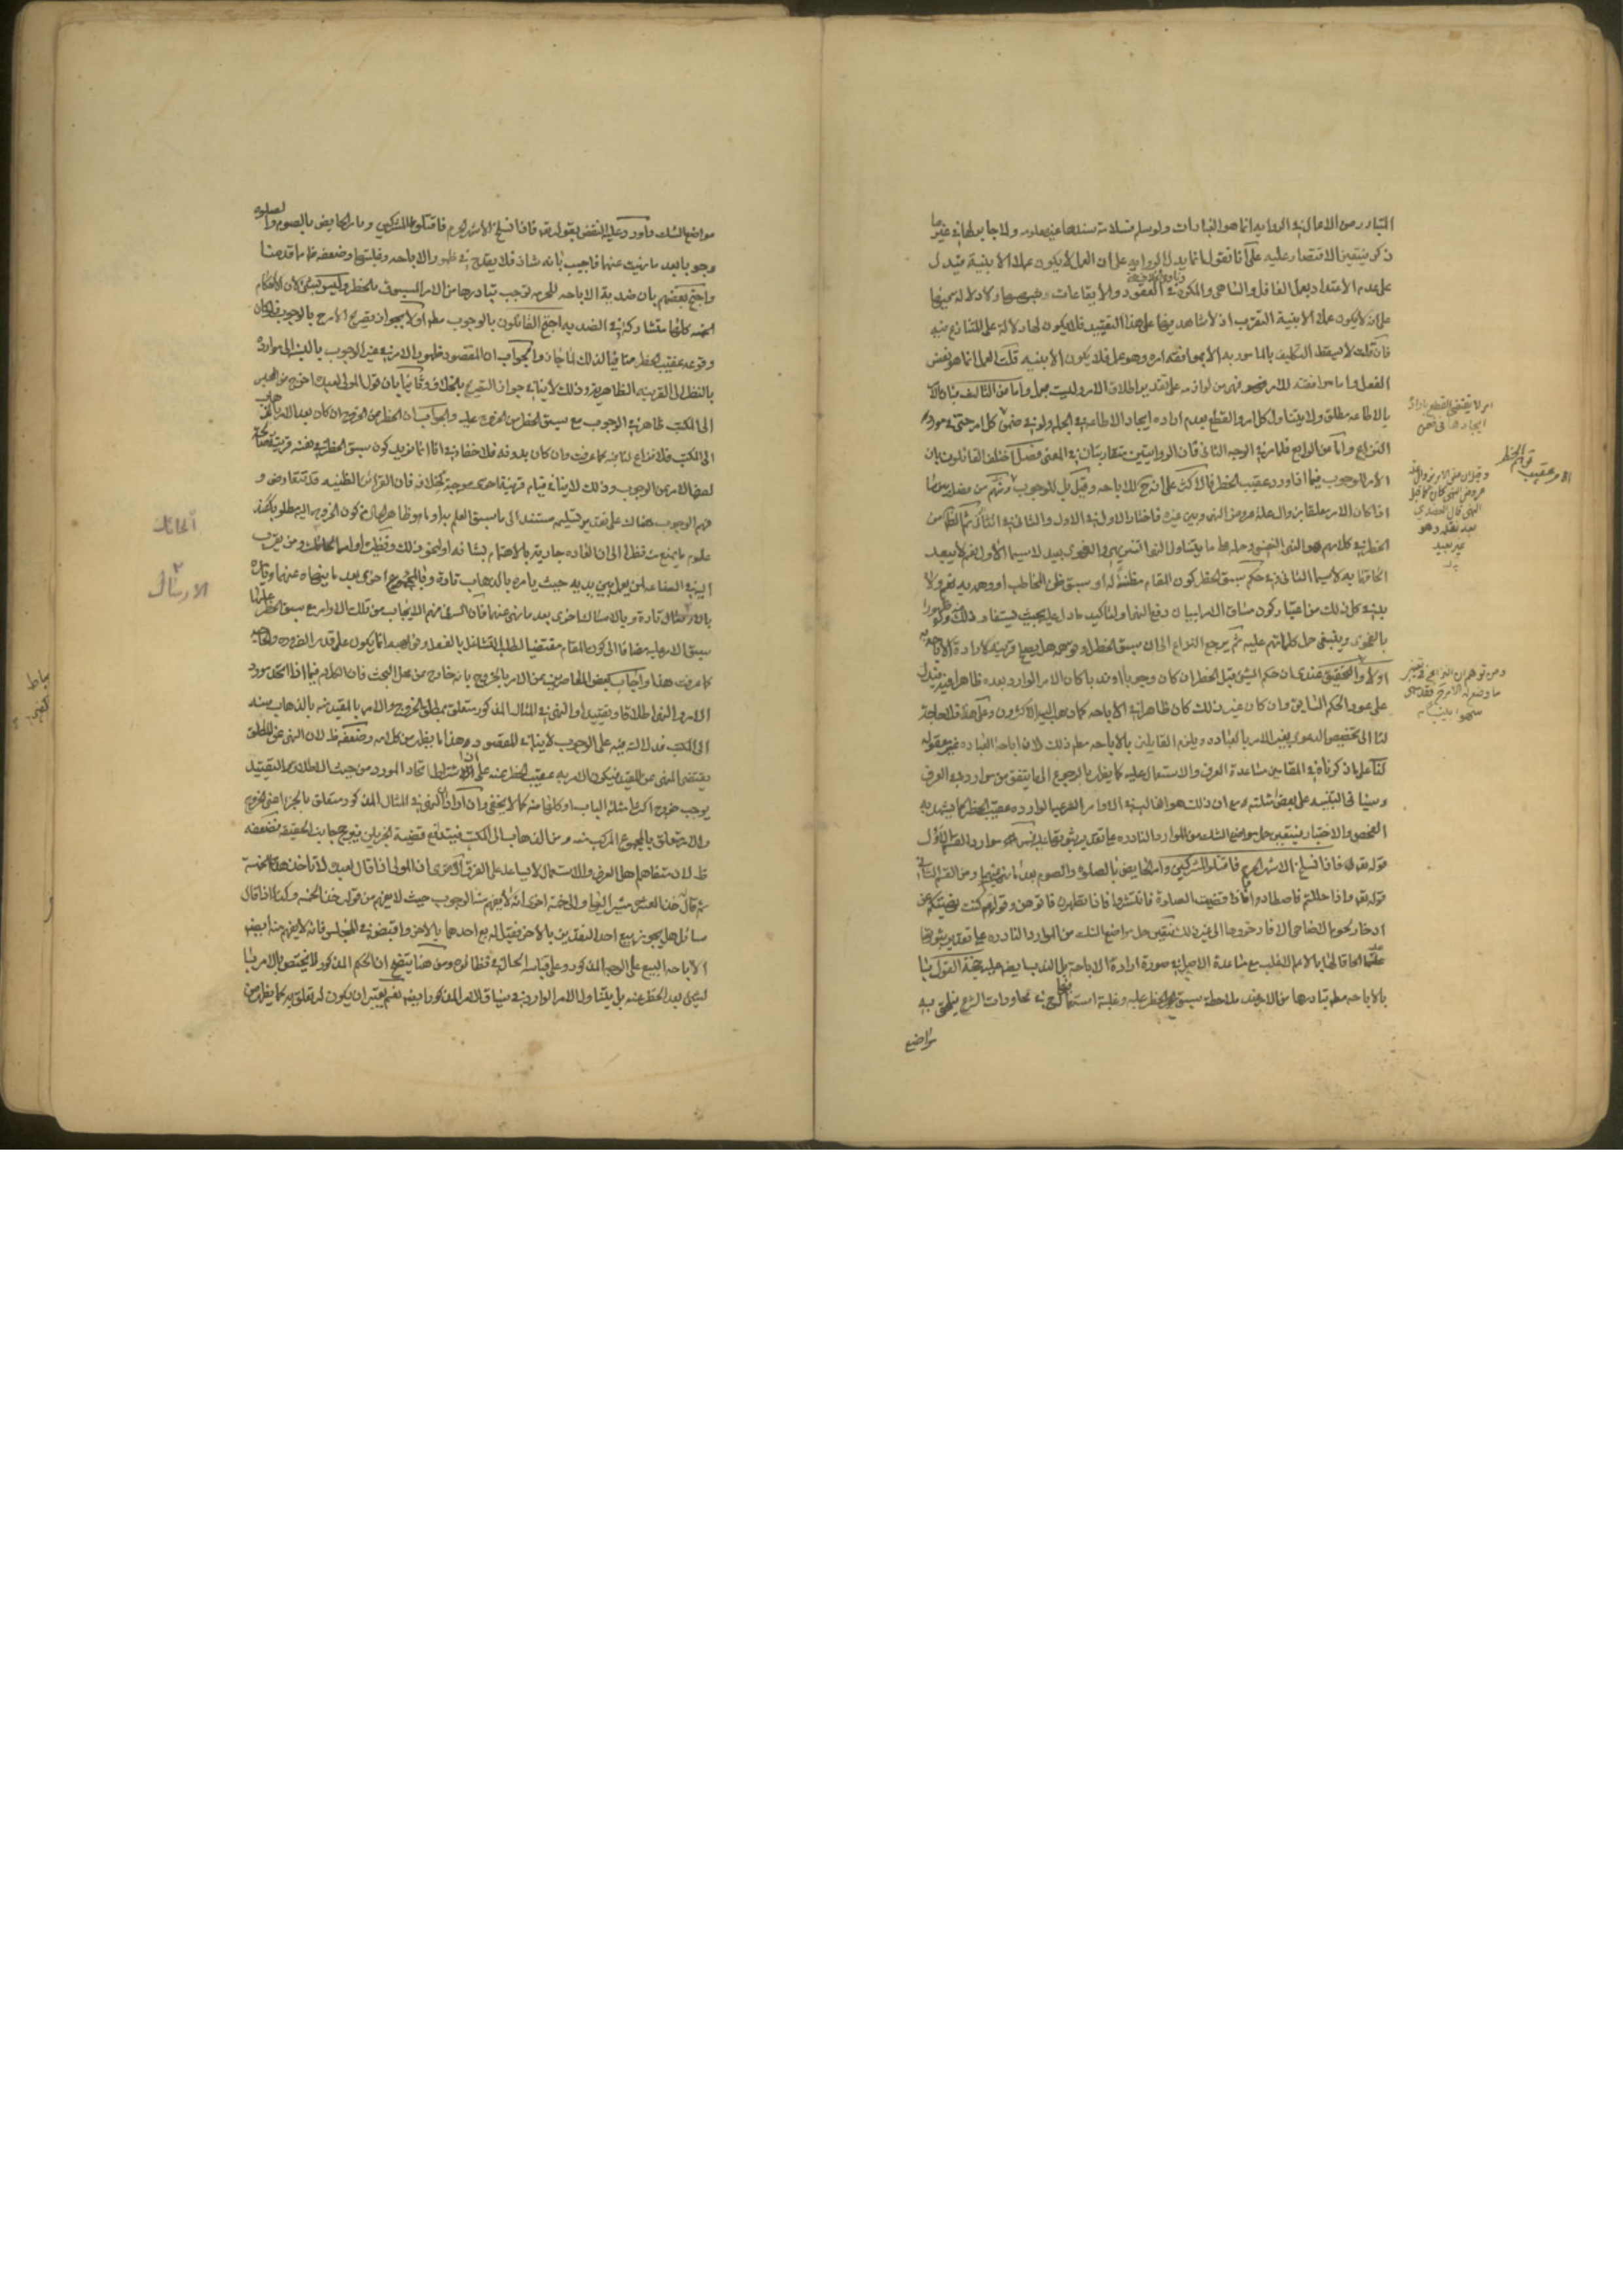 التبادر من الاعمال في الرواية انما هو العبادات ولو سلم فسلامة سندها غير معلوم ولا جابر لها في غير ما
ذكر فيتعين الاقتصار عليه على انا نقول انما يدل الرواية على ان العمل لا يكون عملا الا بنية فيدل
على عدم الاعتداد بعمل الغافل والساهي والمكره في العقود والايقاعات
على انه لا يكون عملا الا بنية التقرب اذ لا شاهد فيها على هذا التقييد فلا يكون لها دلالة على المتنازع فيه
فان قلت لا يسقط التكليف بالمامور به الا بموافقة امره وهو عمل فلا يكون الا بنية قلت العمل انما هو نفس
الفعل واما موافقته للامر فهو من لوازمه على تقدير اطلاق الامر وليست بعمل واما من الثالث فبان الامر
بالاطاعة مطلق ولا يتناول كل امر والقطع بعدم ارادة ايجاد الاطاعة في الجملة ولو في ضمن كل امر حتى في مورد
النزاع واما من الرابع فلما مر في الوجه الثاني فان الروايتين متقاربتان في المعنى فصل اختلف القائلون بان
الامر للوجوب فيما اذا ورد عقيب الحظر فالاكثر على انه ح للاباحة وقيل بل للوجوب ومنهم من فصل بين ما
اذا كان الامر معلقا بزوال علة عروض النهي وبين غيره فاختار الاول في الاول والثاني في الثاني ثم الظاهر من
الحظر في كلامهم هو النهي النفسي وحمله على ما يتناول النهي الغيري بعيد لا سيما الاول نعم لا يبعد
الحاقهما به لا سيما الثاني في حكم سبق الحظر كون المقام مظنة له او سبق ظن المخاطب او وهمه به نعم ولا
بد في كل ذلك من اعتبار كون مساق الامر لبيان رفع النهي
بالفحوى وينبغي حمل كلماتهم عليه ثم يرجع النزاع الى ان سبق الحظر او توهمه هل يصلح قرينة لارادة الاباحة به
او لا والتحقيق عندي ان حكم الشيء قبل الحظر ان كان وجوبا او ندبا كان الامر الوارد بعده ظاهرا فيه فيدل
على عود الحكم السابق وان كان غير ذلك كان ظاهرا في الاباحة كما ذهب اليه الاكثرون وعلى هذا فلا حاجة
لنا الى تخصيص الدعوى بغير الامر بالعبادة ويلزم القائلين بالاباحة مطلقا ذلك لان اباحة العبادة غير معقولة
لنا على ما ذكرناه في المقامين مساعدة العرف والاستعمال عليه كما يظهر بالرجوع الى ما يتفق من موارده في العرف
وسياتي التنبيه على بعض امثلته مع ان ذلك هو الغالب في الاوامر الشرعية الواردة عقيب الحظر كما يشهد به
الفحص والاختبار فيتعين حمل مواضع الشك من الموارد النادرة على تقدير ثبوتها عليه فمن موارد القسم الاول
قوله تعالى فاذا انسلخ الاشهر الحرم فاقتلوا المشركين وامر الحايض بالصلوة والصوم بعد ما نهيت عنهما ومن القسم الثاني
قوله تعالى واذا حللتم فاصطادوا فاذا قضيت الصلوة فانتشروا فاذا تطهرن فاتوهن وقولهم كنت نهيتكم عن
ادخار لحوم الاضاحي الا فادخروها الى غير ذلك فيتعين حمل مواضع الشك من الموارد النادرة على تقدير ثبوتها
عليهما الحاقا لها بالاعم الاغلب مع مساعدة الاصل في صورة ارادة الاباحة بل الندب ايضا حجة القول
بالاباحة مطلقا تبادرها من الامر عند ملاحظة سبق الحظر عليه وغلبة استعماله فيها في محاورات الشرع فيلحق به
مواضع
امر لا يقتضي القطع بارادة
ايجادها في ضمن
توهم الحظر
الامر عقيب
وقيل ان علق الامر بزوال علة
عروض النهي كان كما قبل
النهي قال العضدي
بعد نقله وهو
غير بعيد
ومن توهم ان النزاع في تغيير
ما وضع له الامر ح فقد سهى
سهوا بينا
مواضع الشك واورد عليه النقض بقوله تعالى فاذا انسلخ الاشهر الحرم فاقتلوا المشركين وبامر الحايض بالصوم والصلوة
وجوبا بعد ما نهيت عنهما فاجيب بانه شاذ فلا يقدح في ظهور الاباحة وغلبتها وضعفه ظاهر مما قدمنا
واحتج بعضهم بان ضدية الاباحة للتحريم توجب تبادرها من الامر المسبوق بالحظر وليس بشيء لان الاحكام
الخمسة كلها متشاركة في الضدية احتج القائلون بالوجوب مطلقا اولا بجواز تصريح الامر بالوجوب ولو كان
وقوعه عقيب الحظر منافيا لذلك لما جاز والجواب ان المقصود ظهور الامر في غير الوجوب بالنسبة الى موارده
بالنظر الى القرينة الظاهرة وذلك لا ينافي جواز التصريح بالخلاف وثانيا بان قول المولى لعبده اخرج من الحبس
الى المكتب ظاهر في الوجوب مع سبق الحظر من الخروج عليه والجواب ان الحظر من الخروج ان كان بعد الامر بالذهاب
الى المكتب فلا نزاع لنا فيه كما عرفت وان كان بدونه فلا خفاء في انا انما نريد كون سبق الحظر في نفسه قرينة صالحة
لصرف الامر عن الوجوب وذلك لا ينافي قيام قرينة اخرى موجبة لخلافه فان القرائن الظنية قد تتعارض و
فهم الوجوب هناك على تقدير تسليمه مستند الى ما سبق العلم به او ما هو ظاهر الحال من كون الخروج اليه مطلوبا
الى ان العادة جارية بالاهتمام بشانه او لنحو ذلك
اليه في الصناعة لمن يعمل بين يديه حيث يامره بالذهاب تارة وبالرجوع اخرى بعد ما ينهاه عنهما وتارة
بالارسال تارة وبالامساك اخرى بعد ما نهى عنهما فان السر في فهم الايجاب من تلك الاوامر مع سبق الحظر عليها
سبق الامر عليه مضافا الى كون المقام مقتضيا لطلب التشاغل بالفعل
كما عرفت هذا واجاب بعض المعاصرين عن الامر بالخروج بانه خارج عن محل البحث فان الكلام فيما اذا اتحد مورد
الامر والنهي اطلاقا وتقييدا والنهي في المثال المذكور متعلق بمطلق الخروج والامر بالمقيد منه بالذهاب منه
الى المكتب فدلالته فيه على الوجوب لا ينافي المقصود وهذا ما يظهر من كلامه وضعفه ظ لان النهي عن المطلق
يقتضي النهي عن المقيد فيكون الامر به عقيب الحظر عنه على ان اشتراط اتحاد المورد من حيث الاطلاق والتقييد
يوجب خروج اكثر امثلة الباب او كلها منه كما لا يخفى وان اراد ان النهي في المثال المذكور متعلق بالجزء اعني الخروج
والامر متعلق بالمجموع المركب منه ومن الذهاب الى المكتب فيتدافع قضية الجزئين فيرجح جانب الحقيقة فضعفه
ظ لان متفاهم اهل العرف والاستعمال لا يساعد على الفرق الا ترى ان المولى اذا قال لعبده لا تاخذ هذه الخمسة
ثم قال خذ العشرة مشيرا اليها والى خمسة اخرى انه لا يفهم منه الوجوب حيث لا يفهم من قوله خذ الخمسة وكذا اذا قال
سائل هل يجوز بيع احد النقدين بالاخر فقيل له بع احدهما بالاخر واقبض في المجلس فانه لا يفهم منه ايضا
الاباحة البيع على الوجه المذكور وعلى قياسه الحال في نظائره ومن هنا يتضح ان الحكم المذكور لا يختص بالامر بما
ليس بعد الحظر عنه بل يتناول الامر الوارد في سياق الامر المذكور ايضا نعم يعتبر ان يكون له تعلق به كما يظهر من
الحائك
الارسال